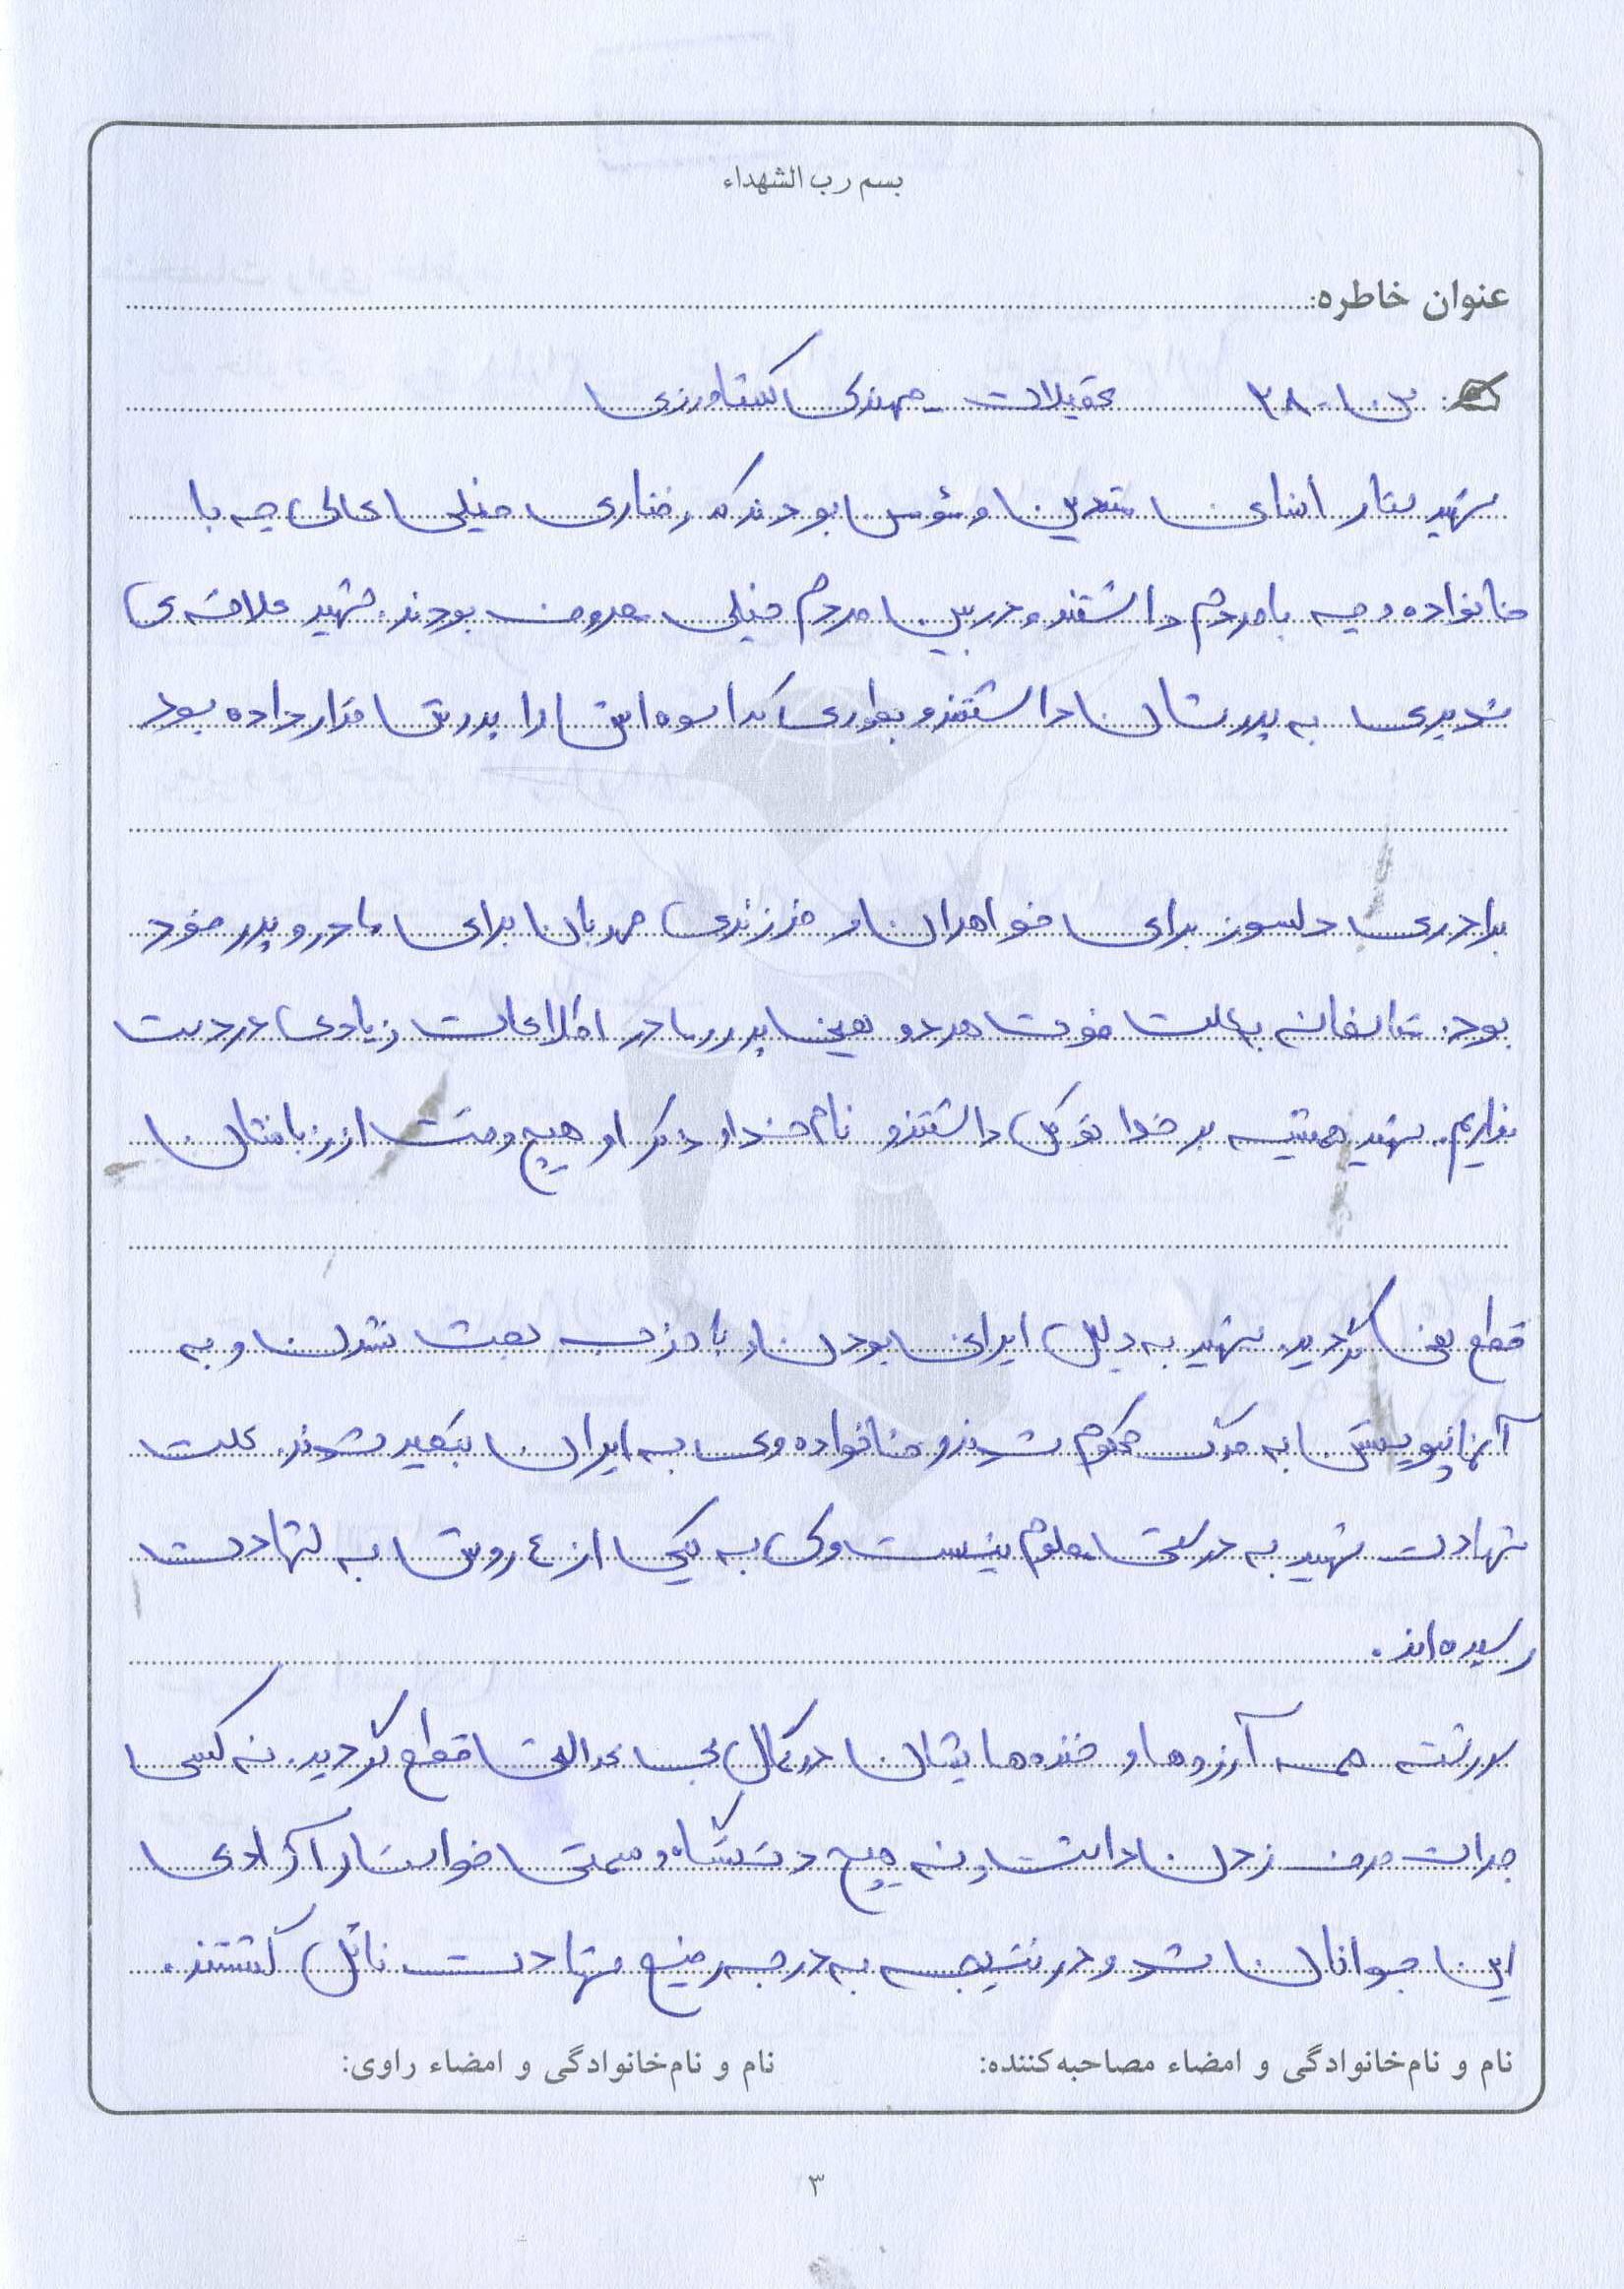 بسم رب الشهداء
عنوان خاطره:
سن - ۲۸ تحصیلات - مهندسی کشاورزی
شهید ستار انسانی متدین و مؤمن بودند که رفتاری خیلی عالی چه با
خانواده و چه با مردم داشتند و در بین مردم خیلی معروف بودند. شهید علاقه‌ی
شدیدی به پدرشان داشتند و بطوری که اسوه اش را پدرش قرار داده بود
برادری دلسوز برای خواهران و فرزندی مهربان برای مادر و پدر خود
بود. متاسفانه به علت فوت هر دو یعنی پدر و مادر اطلاعات زیادی در دست
نداریم. شهید همیشه بر خدا توکل داشتند و نام خدا و ذکر او هیچ وقت از زبانشان
قطع نمی گردید. شهید به دلیل ایرانی بودن و با حزب بعث نشدن و به
به مرگ محکوم شدند و خانواده وی به ایران تبعید شدند. علت
شهادت شهید به درستی معلوم نیست ولی به یکی از ٤ روش به شهادت
رسیده اند.
سررشته همه آرزوها و خنده هایشان در کمال بی عدالتی قطع گردید. نه کسی
جرات حرف زدن داشت و نه هیچ دستگاه و سمتی خواستار آزادی
این جوانان شد و در نتیجه به درجه رفیع شهادت نائل گشتند.
نام و نام‌خانوادگی و امضاء مصاحبه‌کننده: نام و نام‌خانوادگی و امضاء راوی:
۳